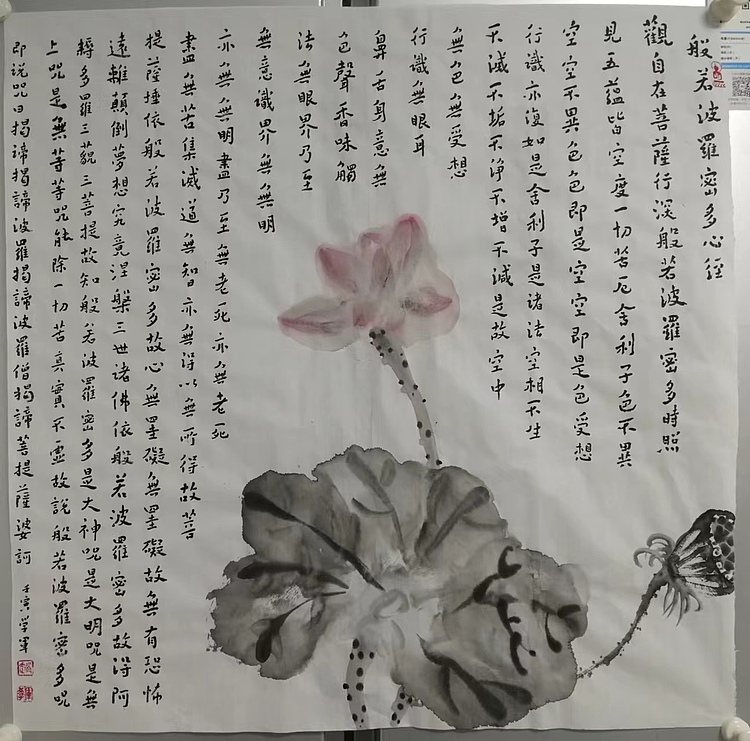 般若波羅密多心經
觀自在菩薩行深般若波羅密多時照
見五蘊皆空度一切苦厄舍利子色不異
空空不異色色即是空空即是色受想
行識亦復如是舍利子是諸法空相不生
不滅不垢不淨不增不減是故空中
無色無受想
行識無眼耳
鼻舌身意無
色聲香味觸
法無眼界乃至
無意識界無無明
亦無無明盡乃至無老死亦無老死
盡無苦集滅道無智亦無得以無所得故菩
提薩埵依般若波羅密多故心無罣礙無罣礙故無有恐怖
遠離顛倒夢想究竟涅槃三世諸佛依般若波羅密多故得阿
耨多羅三藐三菩提故知般若波羅密多是大神咒是大明咒是無
上咒是無等等咒能除一切苦真實不虛故說般若波羅密多咒
即说咒曰揭諦揭諦波羅揭諦波羅僧揭諦菩提薩婆訶
壬寅学军